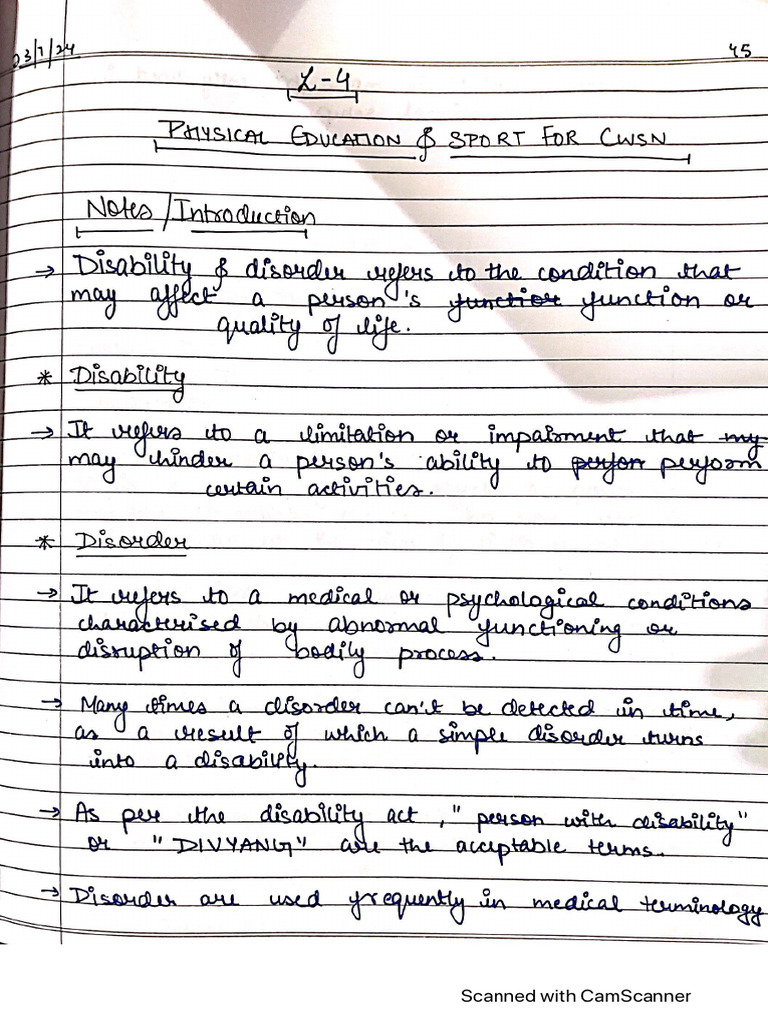 03/7/24
45
L-4
PHYSICAL EDUCATION & SPORT FOR CWSN
Notes/Introduction
→ Disability & disorder refers to the condition that
may affect a person's function function or
quality of life.
* Disability
→ It refers to a limitation or impairment that my
may hinder a person's ability to perfon perform
certain activities.
* Disorder
→ It refers to a medical or psychological conditions
characterised by abnormal functioning or
disruption of bodily process.
→ Many times a disorder can't be detected in time,
as a result of which a simple disorder turns
into a disability.
→ As per the disability act, "person with disability"
or "DIVYANG" are the acceptable terms.
→ Disorder are used frequently in medical terminology
Scanned with CamScanner